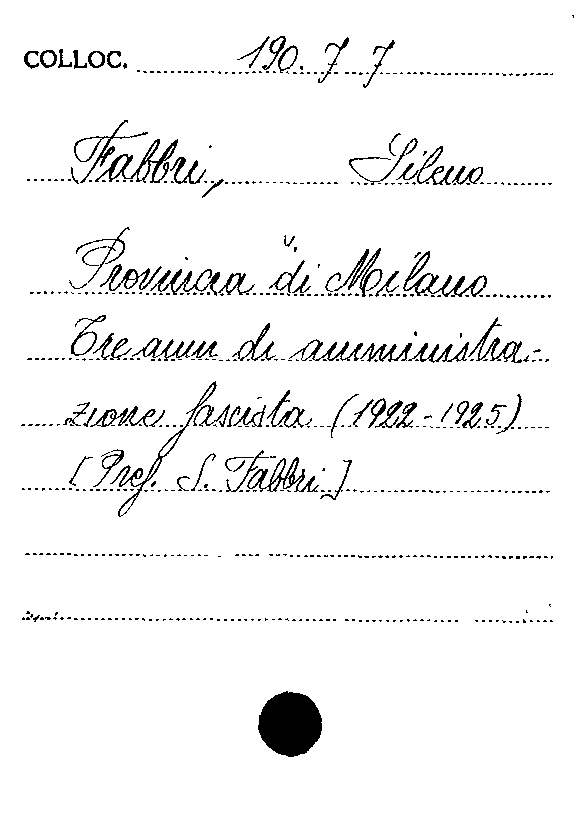 COLLOC. 190. 7 7
Fabbri, Sileno
v.
Provincia di Milano
Tre anni di amministra-
zione fascista (1922-1925)
[Pref. S. Fabbri]